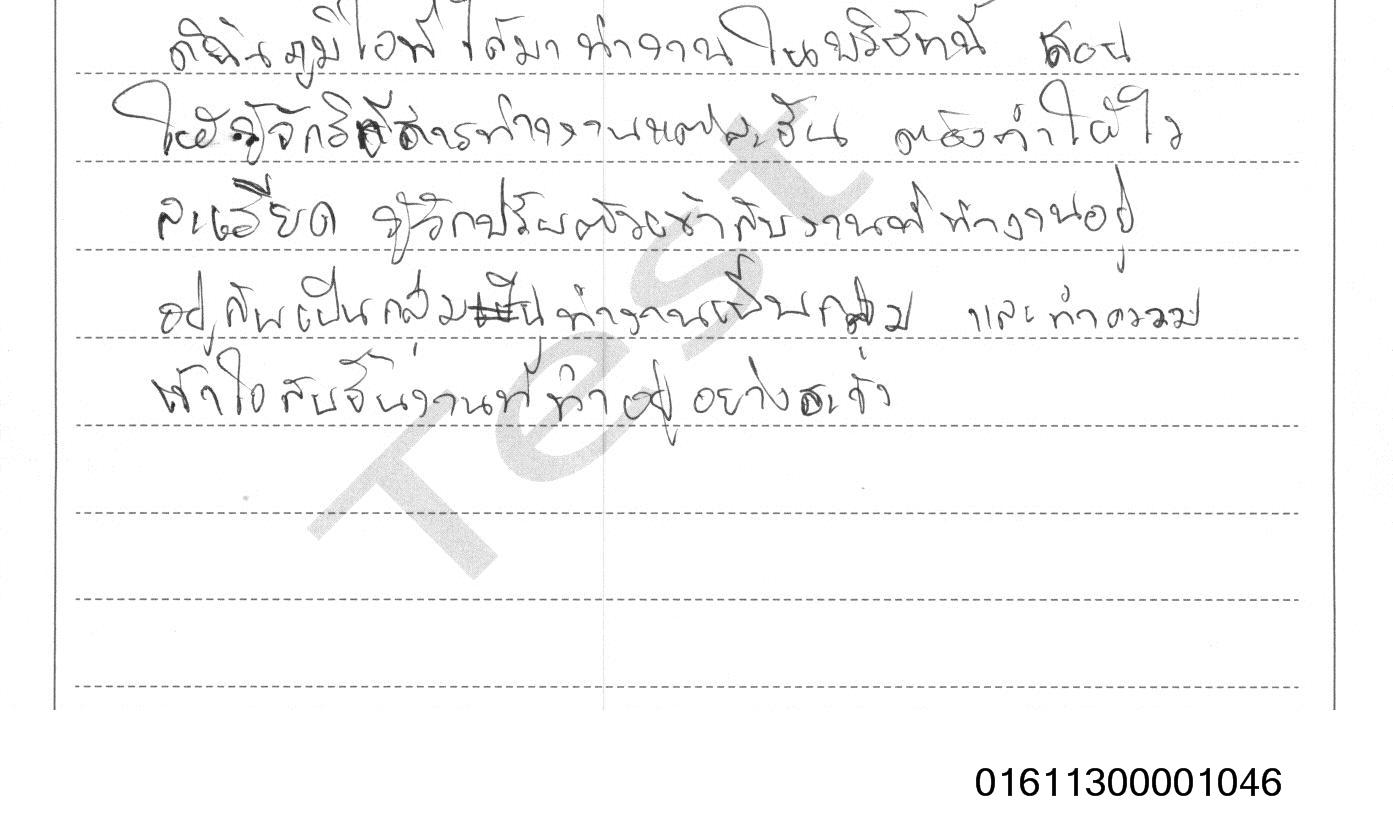 ดิฉันภูมิใจที่ได้มาทำงานในบริษัทนี้ สอน
ให้รู้จักวิธีการทำงานแต่ละชิ้น ต้องทำให้ไร
ละเอียด รู้จักปรับตัวเข้ากับงานที่ทำงานอยู่
อยู่กันเป็นกลุ่ม ทำงานเป็นกลุ่ม และทำความ
เข้าใจกับชิ้นงานที่ทำอยู่ อย่าง
Test
01611300001046